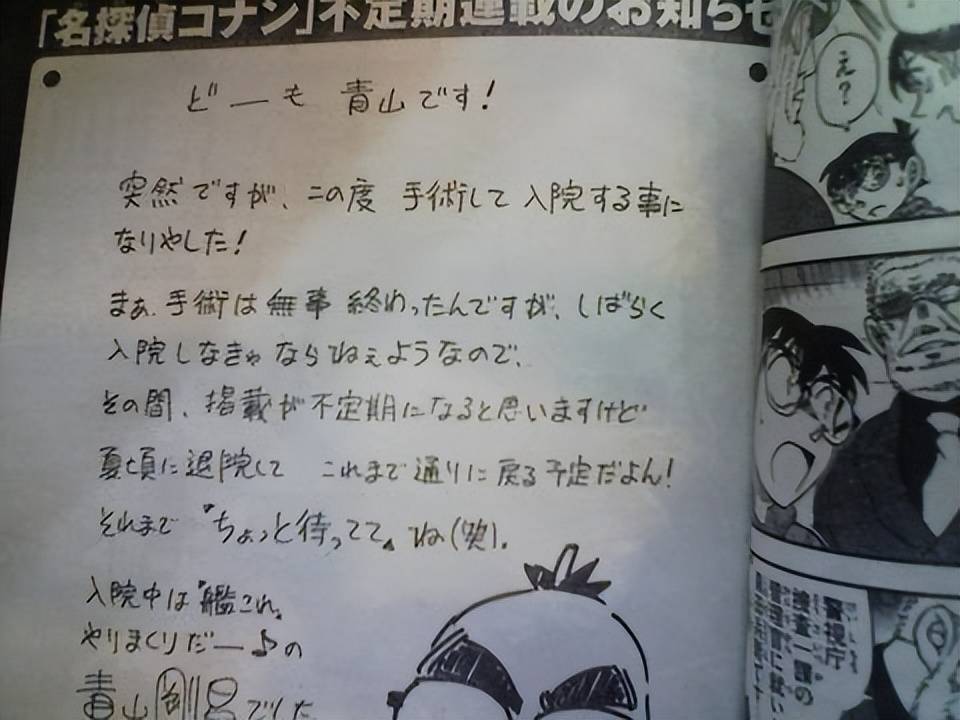 「名探偵コナン」不定期連載のお知らせ
どーも 青山です!
突然ですが、この度 手術して 入院する事に
なりやした!
まぁ、手術は無事 終わったんですが、しばらく
入院しなきゃならねぇようなので、
その間、掲載が不定期になると思いますけど
夏頃に退院して これまで通りに戻る予定だよん!
それまで『ちょっと待ってて』ね(笑)。
入院中は『艦これ』
やりまくりだー♪の
青山剛昌でした
え?
警視庁
捜査一課の
管理官に